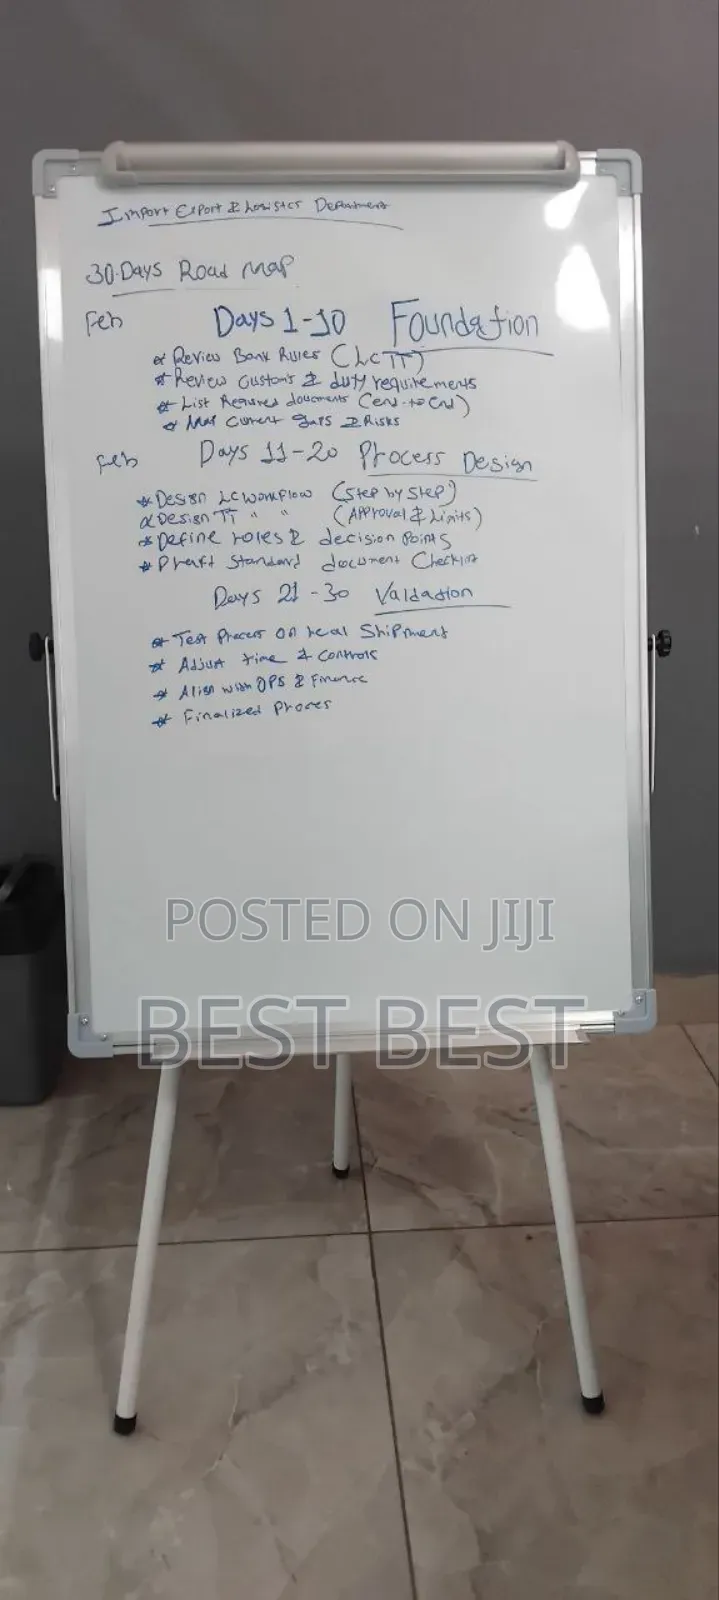 Import Export & Logistics Department
30 Days Road Map
Feb Days 1-10 Foundation
* Review Bank Rules (LC TT)
* Review Customs & duty requirements
* List Required documents (end-to-end)
* Map current gaps & Risks
Feb Days 11-20 Process Design
* Design LC workflow (Step by step)
* Design TT " " (Approval & Limits)
* Define roles & decision points
* Draft Standard document Checklist
Days 21-30 Validation
* Test Process on real Shipment
* Adjust time & controls
* Align with OPS & Finance
* Finalized Process
POSTED ON JIJI
BEST BEST